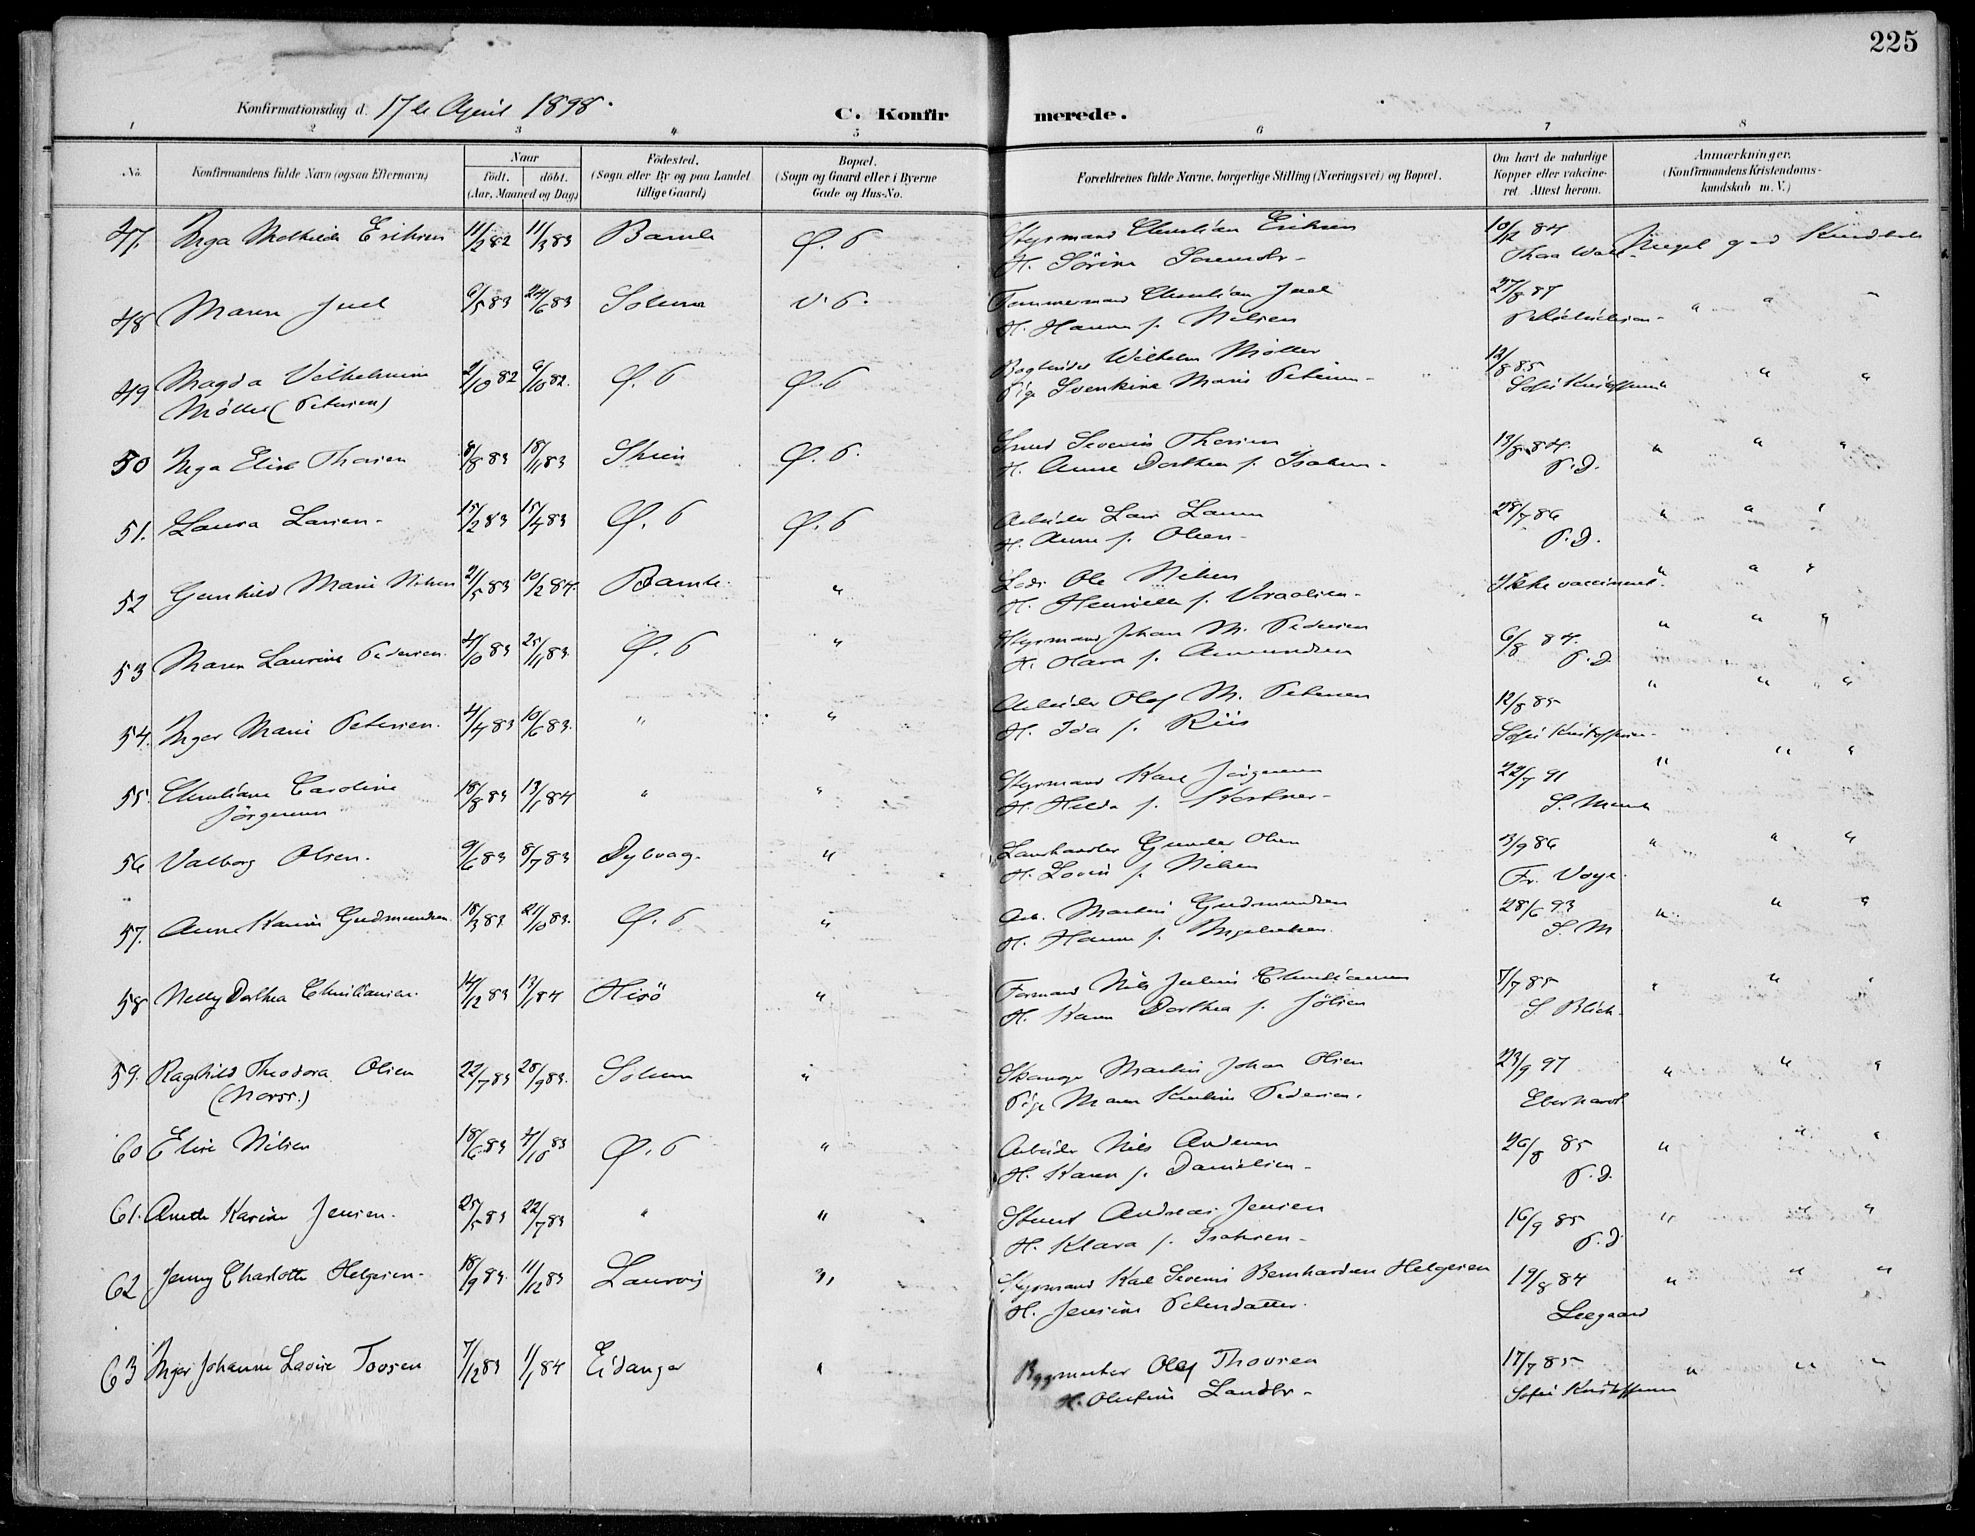 225
Konfirmationsdag d. 17de April 1898.
C. Konfirmerede.
1 2 3 4 5 6 7 8
No.
Konfirmandens fulde Navn (ogsaa Efternavn)
Naar
födt. döbt.
(Aar, Maaned og Dag)
Födested.
(Sogn eller By og paa Landet
tillige Gaard)
Bopæl.
(Sogn og Gaard eller i Byerne
Gade og Hus-No.
Forældrenes fulde Navne, borgerlige Stilling (Næringsvei) og Bopæl.
Om havt de naturlige
Kopper eller vakcine-
ret. Attest herom.
Anmærkninger,
(Konfirmandens Kristendoms-
kundskab m. V.)
47, Inga Mathilde Eriksen 11/2 82 11/3 83 Bamle Ø. 6 Styrmand Christian Eriksen 10/12 84 Meget god Kundskab
H. Sörine Sörensdr - Thea Wall
48 Maren Juel 6/5 83 24/6 83 Solum V. 6. Tømmermand Christian Juel 27/8 87 " " "
H. Hanna f. Nilsen
49 Magda Vilhelmine 2/10 82 6/10 82. Ø. 6 Ø. 6 Wilhelm Møller 12/8 85 " " "
Møller (Petersen) Pige Svenkine Marie Petersen - Sofie Kristoffersen
50 Inga Elise Thorsen 8/8 83 18/11 83 Skien Ø. 6. Smed Severin Thorsen 13/8 84. " " "
H. Anne Dorthea f. Isaksen - P. D.
51. Laura Larsen - 15/2 83 15/4 83 Ø. 6 Ø. 6 Arbeider Lars Larsen 28/7 86 " " "
H. Anne f. Olsen - P. D.
52 Gunhild Marie Nilsen 21/5 83 10/2 84. Bamle. " Lods Ole Nilsen Ikke vaccineret. " " "
H. f.
53 Maren Laurine Pedersen. 4/10 83 25/11 83. Ø. 6 " Styrmand Johan M. Pedersen 6/8 84. " " "
H. Olava f. Amundsen P. D.
54. Inger Marie Petersen. 4/4 83 10/6 83. " " Arbeider Olaf M. Petersen 12/8 85 " " "
H. Ida f. Riis Sofie Kristoffersen -
55. Christiane Caroline 18/8 83 13/1 84 " " Styrmand Karl Jörgensen 22/7 91 " " "
Jörgensen H. Hilda f. S. Munk
56 Valborg Olsen. 9/6 83 8/7 83 Dybvag. " Landhandler Gunder Olsen 3/9 86 " " "
H. Lovise f. Nilsen Fr. Voye.
57. Anne Karine Gudmundsen 18/3 83. 21/10 83. Ø. 6 " Arb. Martin Gudmundsen 28/6 93 " " "
H. Hanna f. S. M
58 Nelly Dorthea Christiansen. 14/12 83 13/1 84 Hisö " Formand Nils Julius Christiansen 7/7 85 " " "
H. Karen Dorthea f. S. Blich.
59. Raghild Theodora Olsen 22/7 83 28/9 83. Solum " Martin Johan Olsen 23/9 97 " " "
(Norss.) Pige Maren Kristine Pedersen. Eberhardt
60 Elise Nilsen 18/6 83 4/10 83 Ø. 6 " Arbeider Nils Andersen 26/8 85 " " "
H. Karen f. Danielsen - P. D.
61. Anette Karine Jensen. 25/5 83 22/7 83 " " Stuert Andreas Jensen 16/9 85 " " "
H. Klara f. Isaksen - P. D.
62 Jenny Charlotte Helgesen - 18/9 83. 11/12 83 Laurvig " Styrmand Karl Severin Bernhardsen Helgesen 19/8 84 " " "
H. Jensine Petersdatter. Leegaard
63 Inger Johanne Lovise Tovsen 7/12 83 1/1 84 Eidanger " Byggmester Olaf Thovsen 17/7 85 " " "
H. Olufine Landbr - Sofie Kristoffersen